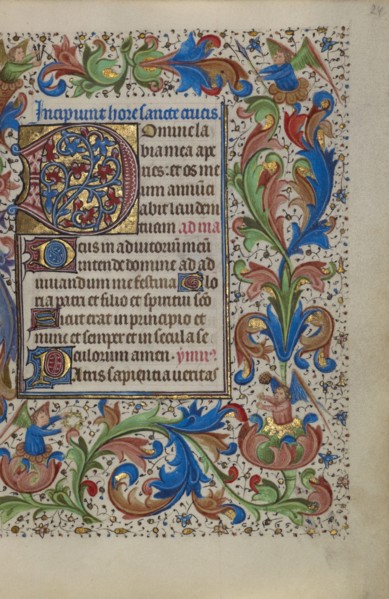 24
Incipiunt hore sancte crucis.
Domine la
bia mea ape
ries: et os me
um annūci
abit laudem
tuam ad ma
Deus in adiutoriū meū
intende domine ad ad
iuuandum me festina Glo
ria patri et filio et spiritui sco
Sicut erat in principio et
nunc et semper et in secula se
culorum amen. ymnꝰ.
Patris sapientia ueritas